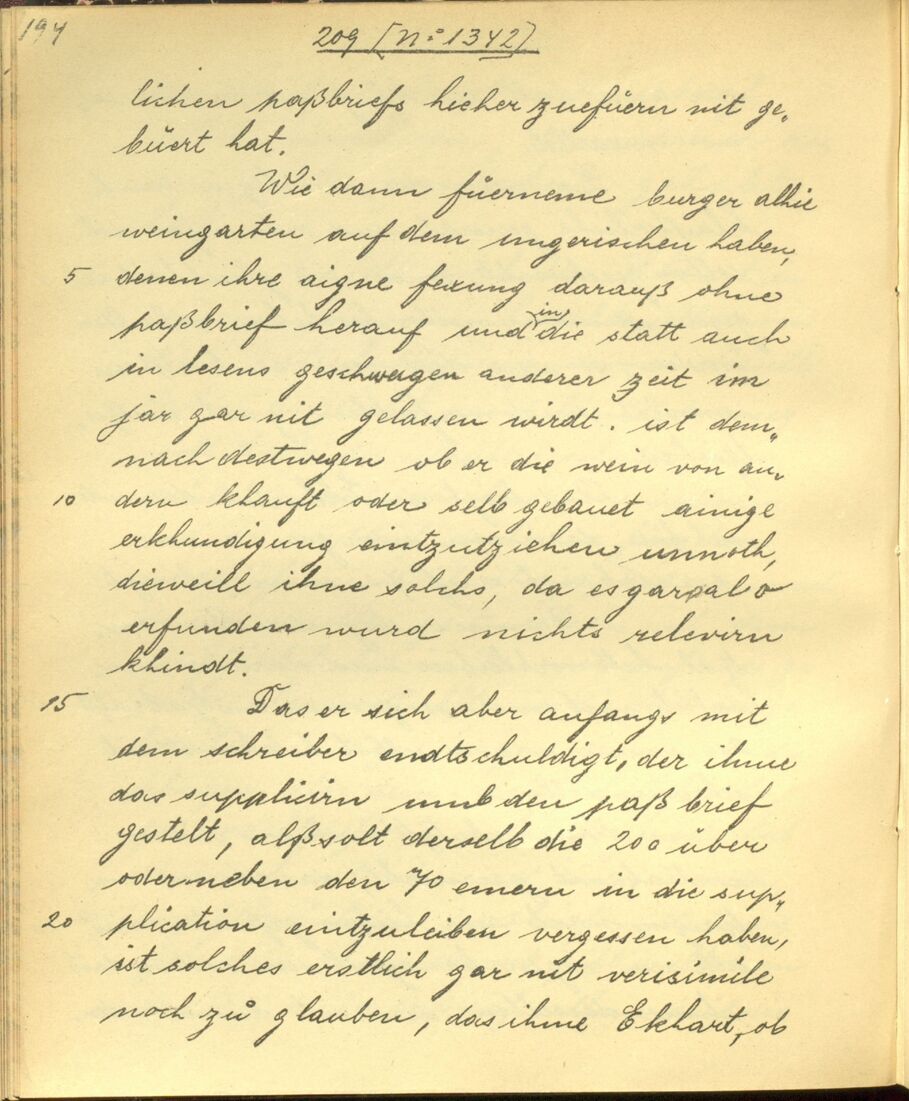 194
209 [No 1342]
lichen paßbriefs hieher zuefüern nit ge„
büert hat.
Wie dann füerneme burger alhie
weingarten auf dem ungerischen haben,
5 denen ihre aigne fexung darauß ohne
paßbrief herauf und in die statt auch
in lesens geschweigen anderer zeit im
jar gar nit gelassen wirdt. ist dem„
nach destwegen ob er die wein von an„
10 dern khauft oder selb gebauet ainige
erkhundigung eintzutziehen unnoth,
dieweill ihne solchs, da es gar also
erfunden wurd nichts relevirn
khindt.
15 Das er sich aber anfangs mit
dem schreiber endtschuldigt, der ihme
das supplicirn umb den paß brief
gestelt, alß solt derselb die 200 über
oder neben den 70 emern in die sup„
20 plication eintzuleiben vergessen haben,
ist solches erstlich gar nit verisimile
noch zů glauben, das ihme Ekhart, ob